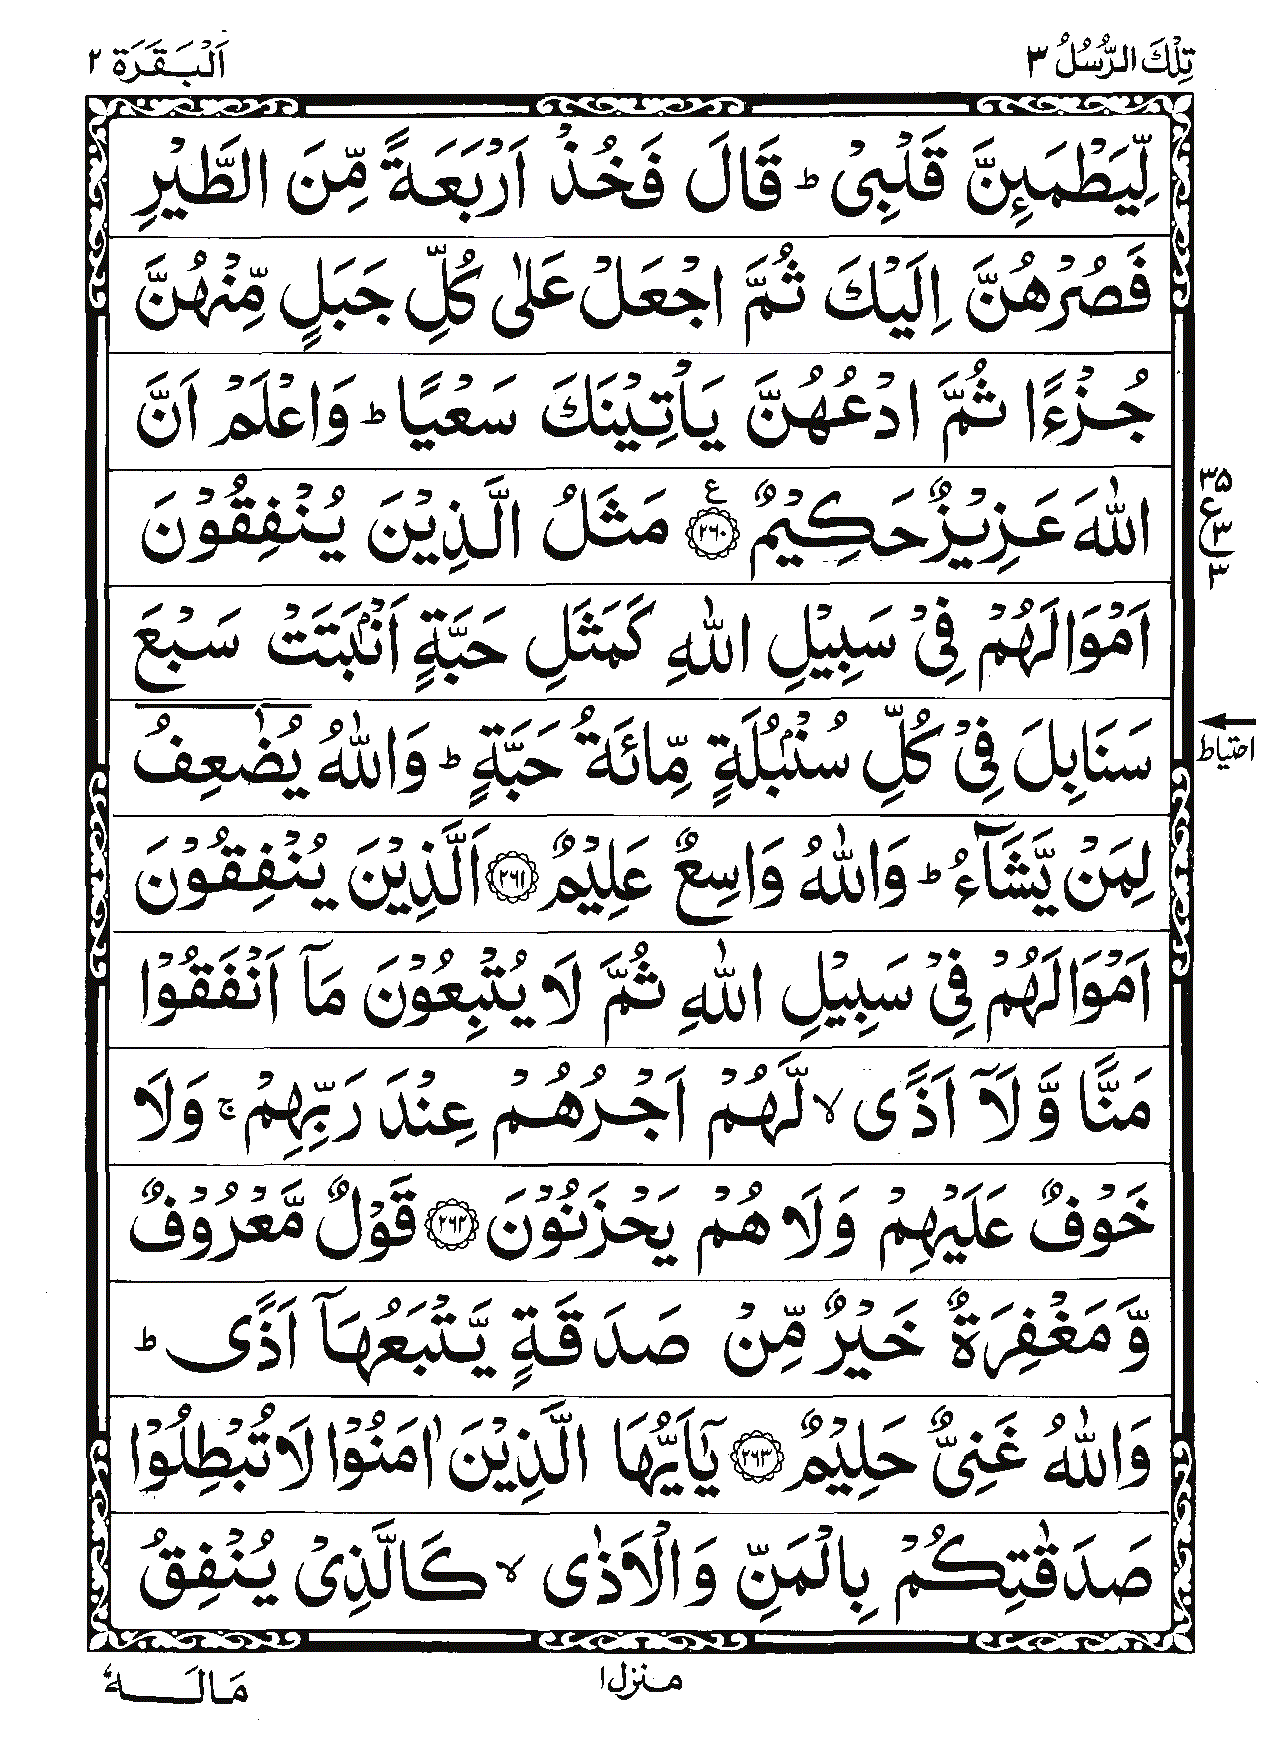 تِلْكَ الرُّسُلُ ٣
اَلْبَقَرَة ٢
لِّيَطْمَىِٕنَّ قَلْبِیْ ؕ قَالَ فَخُذْ اَرْبَعَةً مِّنَ الطَّيْرِ
فَصُرْهُنَّ اِلَيْكَ ثُمَّ اجْعَلْ عَلٰى كُلِّ جَبَلٍ مِّنْهُنَّ
جُزْءًا ثُمَّ ادْعُهُنَّ يَاْتِيْنَكَ سَعْيًا ؕ وَاعْلَمْ اَنَّ
اللّٰهَ عَزِيْزٌ حَكِيْمٌ ﴿٢٦٠﴾ ع مَثَلُ الَّذِيْنَ يُنْفِقُوْنَ
٣٥
ع
٣
٣
اَمْوَالَهُمْ فِیْ سَبِيْلِ اللّٰهِ كَمَثَلِ حَبَّةٍ اَنْۢبَتَتْ سَبْعَ
سَنَابِلَ فِیْ كُلِّ سُنْۢبُلَةٍ مِّائَةُ حَبَّةٍ ؕ وَاللّٰهُ يُضٰعِفُ
احتیاط
لِمَنْ يَّشَآءُ ؕ وَاللّٰهُ وَاسِعٌ عَلِيْمٌ ﴿٢٦١﴾ اَلَّذِيْنَ يُنْفِقُوْنَ
اَمْوَالَهُمْ فِیْ سَبِيْلِ اللّٰهِ ثُمَّ لَا يُتْبِعُوْنَ مَاۤ اَنْفَقُوْا
مَنًّا وَّلَاۤ اَذًى ۙ لَّهُمْ اَجْرُهُمْ عِنْدَ رَبِّهِمْ ۚ وَلَا
خَوْفٌ عَلَيْهِمْ وَلَا هُمْ يَحْزَنُوْنَ ﴿٢٦٢﴾ قَوْلٌ مَّعْرُوْفٌ
وَّمَغْفِرَةٌ خَيْرٌ مِّنْ صَدَقَةٍ يَّتْبَعُهَاۤ اَذًى ؕ
وَاللّٰهُ غَنِیٌّ حَلِيْمٌ ﴿٢٦٣﴾ يٰۤاَيُّهَا الَّذِيْنَ اٰمَنُوْا لَا تُبْطِلُوْا
صَدَقٰتِكُمْ بِالْمَنِّ وَالْاَذٰى ۙ كَالَّذِیْ يُنْفِقُ
منزل ١
مَالَهٗ